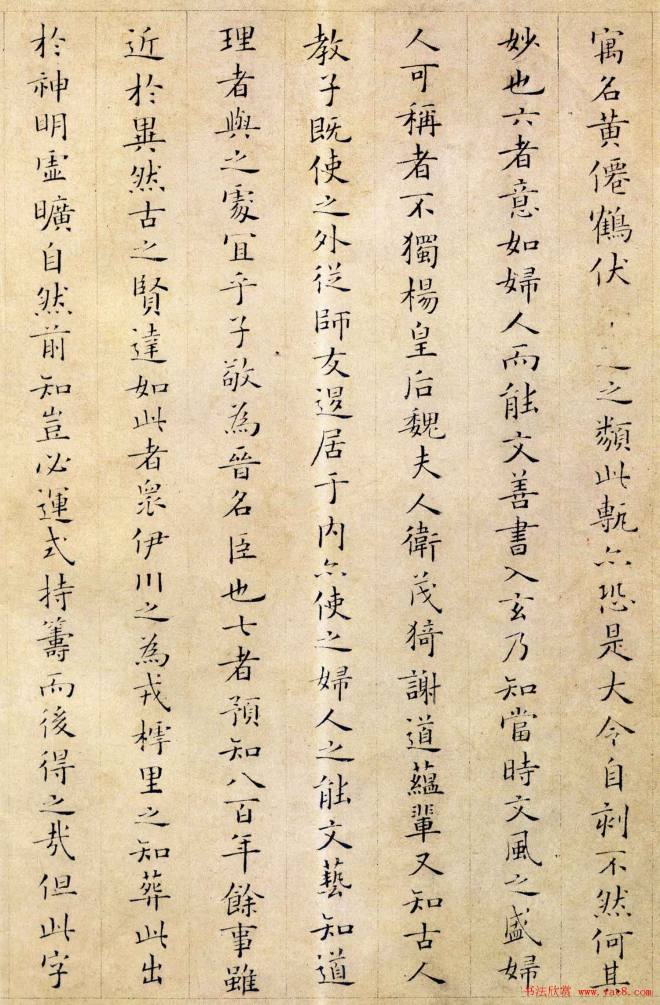 寓名黄僊鶴伏之類此甎亦恐是大令自刻不然何其
妙也六者意如婦人而能文善書入玄乃知當時文風之盛婦
人可稱者不獨楊皇后魏夫人衛茂猗謝道蘊輩又知古人
教子既使之外從師友退居于内亦使之婦人之能文藝知道
理者與之處宜乎子敬為晉名臣也七者預知八百年餘事雖
近於異然古之賢達如此者衆伊川之為戎樗里之知葬此出
於神明虛曠自然前知豈必運式持籌而後得之哉但此字
书法欣赏